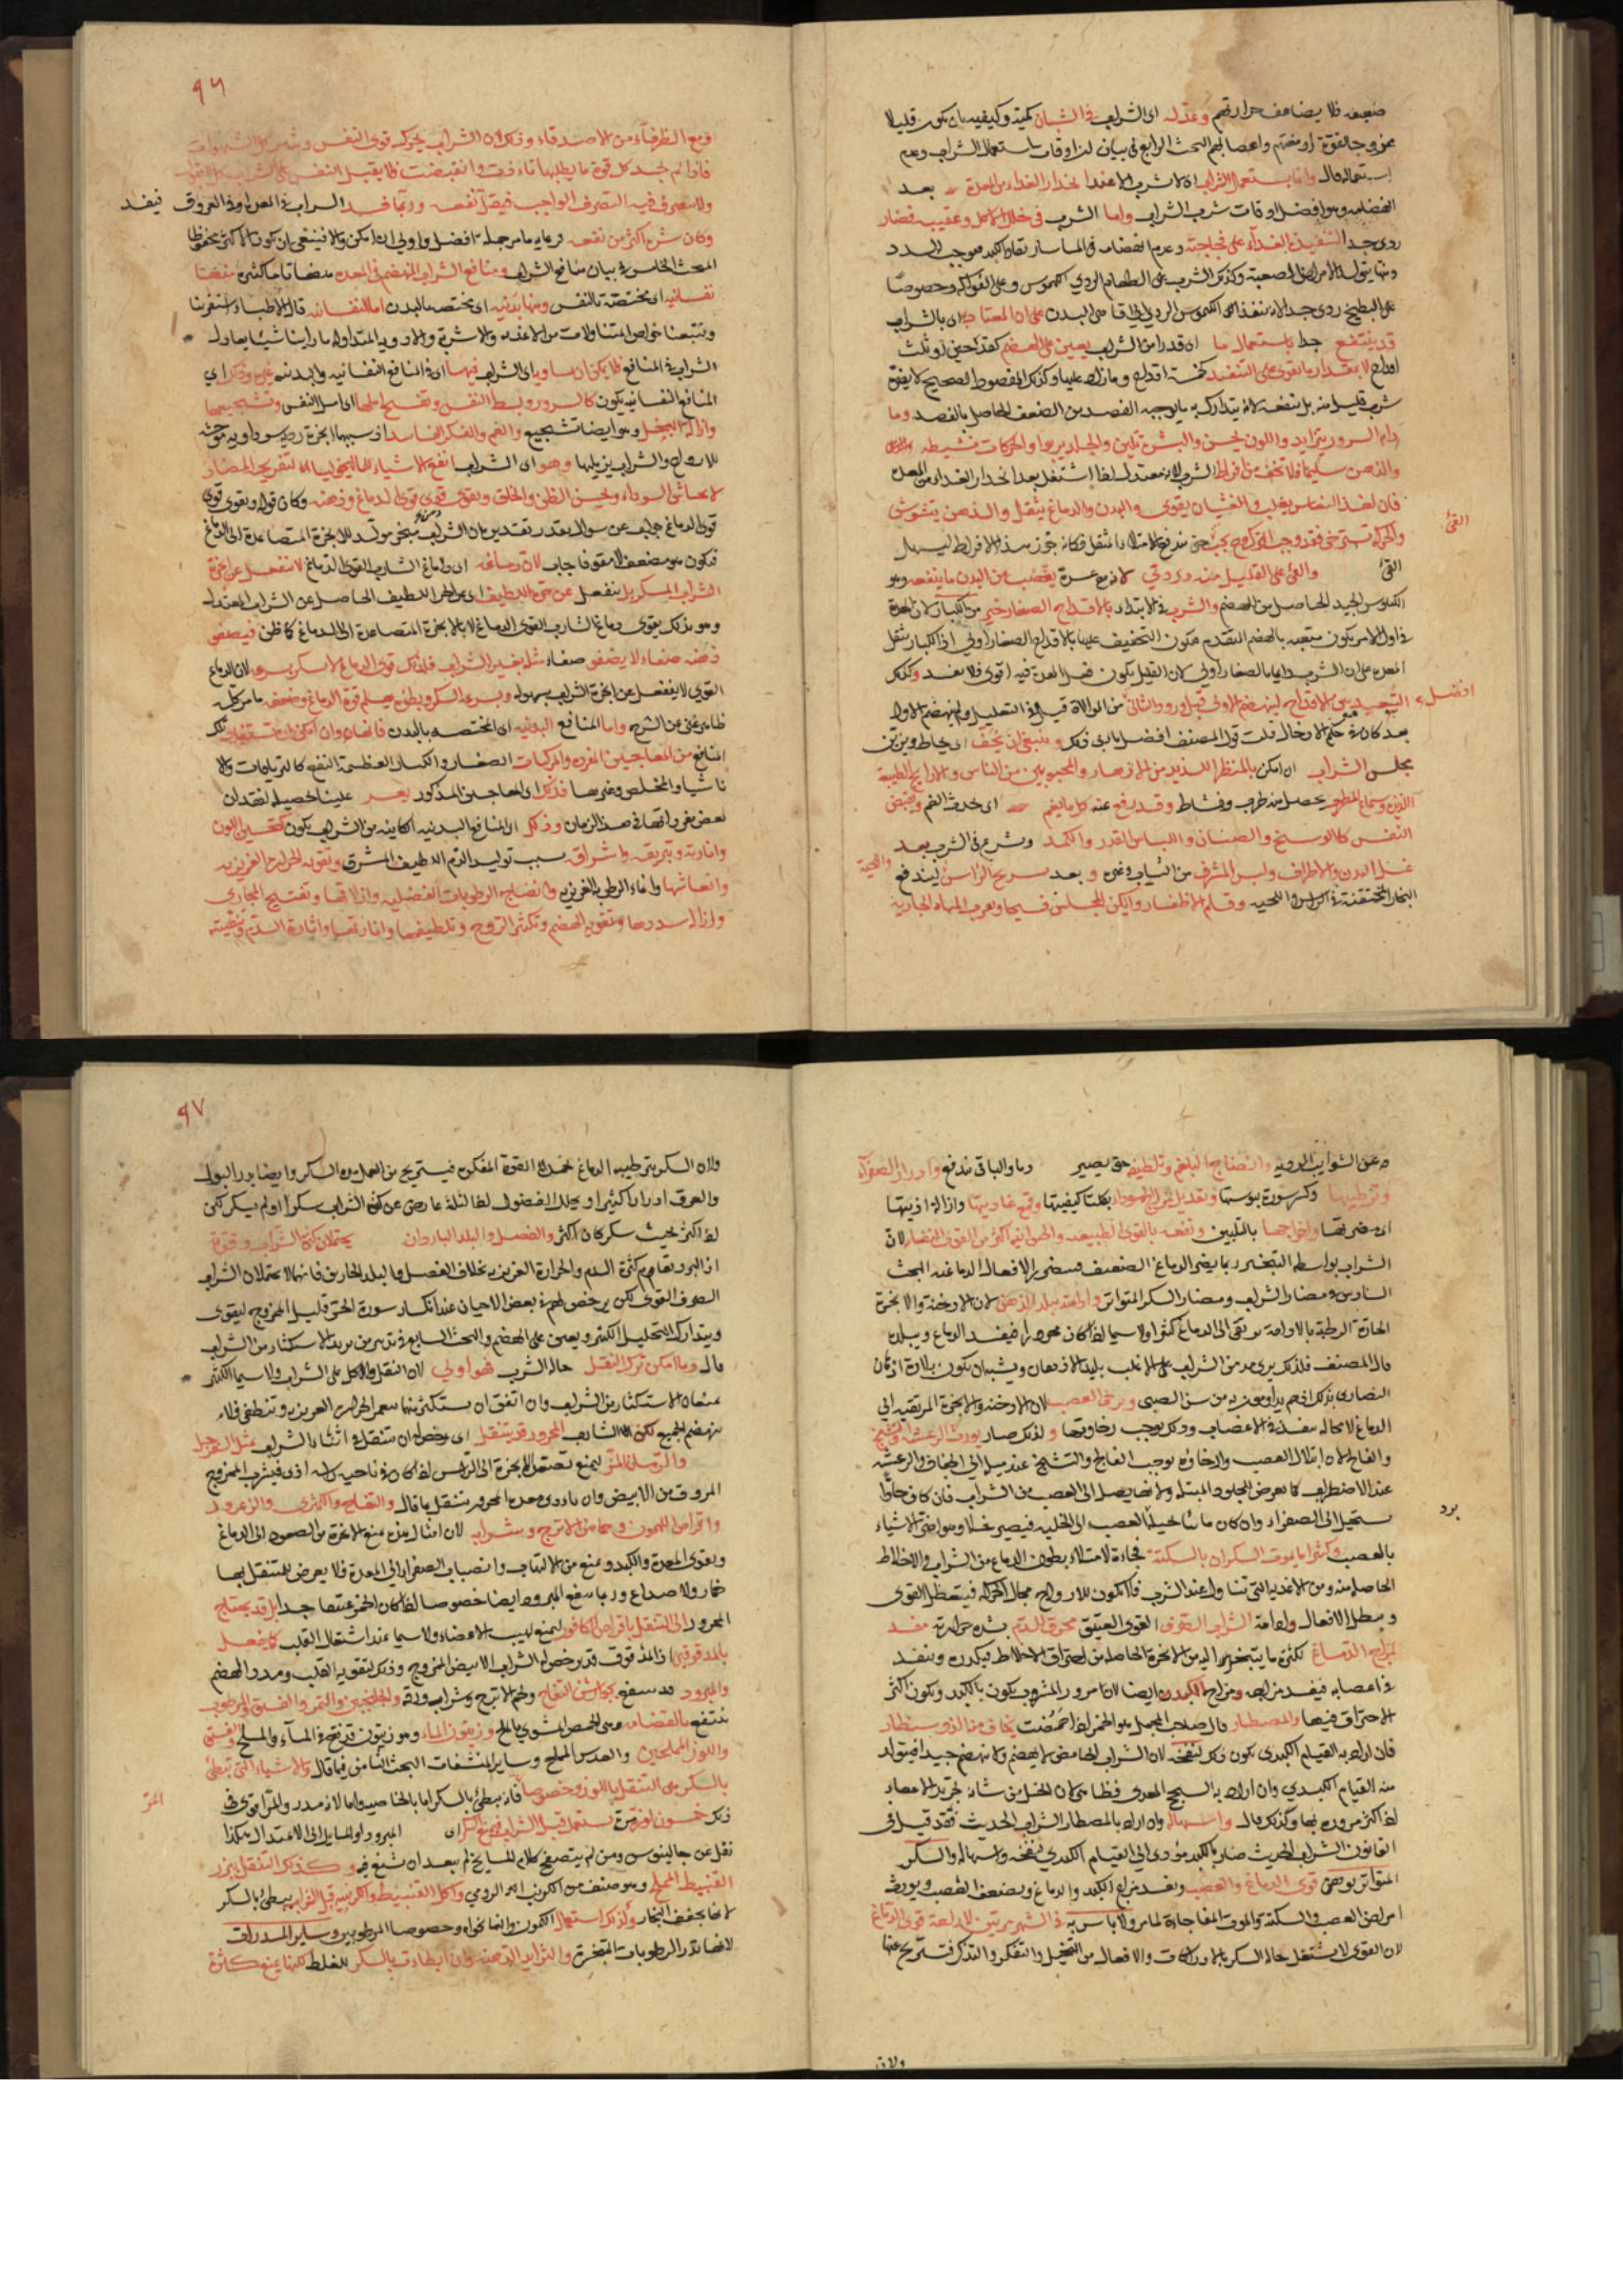 ضعيفة فلا يضاعف حرارتهم وعدله اى الشراب فى الشبان كمية وكيفية بان يكون قليلا
ممزوجا لقوة ادمغتهم واعصابهم البحث الرابع فى بيان اوقات استعمال الشراب وعدم
استعماله قال وانما يستعمل الشراب اى لا يشرب الا عند انحدار الغذاء من المعدة بعد
انهضامه وهو افضل اوقات شرب الشراب واما الشرب فى خلال الاكل وعقيبه فضار
ردى جدا لتنفيذه الغذاء على فجاجته وعدم انهضامه فى الماساريقا والكبد فيوجب السدد
وما يتولد الامراض الصعبة وكذلك الشرب على الطعام الردي الكيموس وعلى الفواكه وخصوصا
على البطيخ ردى جدا لانه ينفذ الكيموس الردي الى اقاصى البدن على ان المعتاد به اى بالشراب
قد ينتفع جدا باستعمال ما اى قدر من الشراب يعين على الهضم كقدحين او ثلث
اقداح لا بمقدار ما يقوى على التنفيذ كخمسة اقداح وما زاد عليها وكذلك المفصود الصحيح لا يضره
شرب قليل منه بل ينفعه لانه يتدارك به ما يوجبه الفصد من الضعف الحاصل بالفصد وما
دام السرور يتزايد واللون يحسن والبشرة تلين والجلد يربوا والحركات نشيطة
والذهن سليما فلا تخف من افراط الشرب لانه معتدل لهذا اشتغل بعد انحدار الغذاء من المعدة
فان اخذ النعاس يغلب والغثيان يقوى والبدن والدماغ يثقل والذهن يتشوش
والحركة تسترخى فقد وجب الترك وح يجب حتى يندفع الامتلاء المثقل فكانه جوز هذا الافراط ليسهل
القئ
القئ والقئ على القليل منه ردى لانه مع عسره يغصب من البدن ما ينفعه وهو
الكيلوس الجيد الحاصل من الهضم والشرب فى الابتداء بالاقداح الصغار خير من الكبار لان المعدة
فى اول الامر يكون متعبة بالهضم المتقدم فيكون التخفيف عليها بالاقداح الصغار اولى اذ الكبار تثقل
المعدة على ان الشرب دايما بالصغار اولى لان القليل يكون فعل المعدة فيه اقوى فلا يفسد وكذلك
افضل
التبعيد بين الاقداح لينهضم الاول قبل ورود الثانى من الموالاة
بعد كان فى حكم الادخال قلت قول المصنف افضل يابى ذلك وينبغى ان يحف اى يحاط ويزين
مجلس الشراب ان امكن بالمنظر اللذيذ من الازهار والمحبوبين من الناس والاراييح الطيبة
اللذيذة وسماع المطرب يحصل منه طرب ونشاط وقد رفع عنه كل ما يغم اى يحدث الغم ويقبض
النفس كالوسخ والصنان واللباس القذر والكمد ويشرع فى الشرب بعد
غسل البدن والاطراف ولبس المشرف من الثياب وغيره وبعد تسريح الراس ليندفع
واللحية
البخار المحتقنة فى الراس واللحية وقلم الاظفار وليكن المجلس فسيحا وبقرب المياه الجارية
٩٦
ومع الظرفاء من الاصدقاء وذلك لان الشراب يحرك قوى النفس
فاذا لم تجد كل قوة ما يطلبها تاذت وانقبضت فلا يقبل النفس على الشراب
ولا يتصرف فيه التصرف الواجب فيقل نفعه وربما فسد الشراب فى المعدة او فى العروق فيفسد
وكان شره اكثر من نفعه فرعاية ما مر جملة افضل واولى ان امكن والا فينبغى ان يكون الاكثر محفوظا
البحث الخامس فى بيان منافع الشراب ومنافع الشراب المنهضم فى المعدة هضما تاما كثيرة منها
نفسانية اى مختصة بالنفس ومنها بدنية اى مختصة بالبدن اما النفسانية قال الاطباء استقرينا
وتتبعنا خواص المتناولات من الاغذية والاشربة والادوية المتداولة ما راينا شيئا يعادل
الشراب فى المنافع فلا يمكن ان يساويه اى الشراب فيها اى فى المنافع النفسانية والبدنية غيره وذلك اى
المنافع النفسانية يكون كالسرور وبسط النفس وتفسيح املها اى امل النفس وتشجيعها
وازالة البخل وهو ايضا تشجيع والغم والفكر الفاسد اذ سببهما ابخرة ردية سوداوية موحشة
للارواح والشراب يزيلها وهو اى الشراب انفع الاشياء للماليخوليا لتفريجه المضاد
لايحاش السوداء ويحسن الظن والخلق ويقوى قوى الدماغ وذهنه وكان قوله ويقوى قوى
قوى الدماغ جواب عن سوال مقدر تقديره ان الشراب مبخر مولد للابخرة المتصاعدة الى الدماغ
فيكون هو مضعفا لا مقويا فاجاب لان دماغه اى دماغ الشارب القوى الدماغ لا ينفعل عن ابخرة
الشراب المسكر بل ينفعل عن حره اللطيف اى عن الحر اللطيف الحاصل عن الشراب المعتدل
وهو بذلك يقوى دماغ الشارب القوى الدماغ لا بالابخرة المتصاعدة الى الدماغ كما ظن فيصفى
ذهنه صفاء لا يصفى صفاء مثله بغير الشراب فلذلك قوى الدماغ لا يسكر بسرعة لان الدماغ
القوى لا ينفعل عن ابخرة الشراب بسهولة وبسرعة السكر وبطوئه يعلم قوة الدماغ وضعفه ما مر كله
ظاهر غنى عن الشرح واما المنافع البدنية اى المختصة بالبدن فانها وان امكن ان يستفاد تلك
المنافع من المعاجين المفردة والمركبات الصغار والكبار العظيمة النفع كالترياقات ولا
ناشيا والمخلص وغيرها فذلك اى المعاجين المذكور يعسر علينا تحصيله لفقدان
بعض مفرداتها فى هذا الزمان وذلك اى المنافع البدنية الكاينة من الشراب يكون كتحسين اللون
وانارته وتبريقه واشراقه بسبب توليد الدم اللطيف المشرق وتقوية الحرارة الغريزية
وانعاشها وانماء الرطوبة الغريزية وانضاج الرطوبات الفضلية وازلاقها وتفتيح المجارى
وازالة سددها وتقوية الهضم وتكثير الروح وتلطيفها وانارتها واثارة الدم وتنقيته
ه عن الشوائب الردية وانضاج البلغم وتلطيفه حتى يصير دما والباقى يندفع وادرار الصفراء
وترطيبها وكسر سورة يبوستها وتعديل مزاج السوداء بكلتا كيفيتها وقمع عاديتها وازالة اذيتها
اى مضرتها واخراجها بالتليين ونفعه بالقوى الطبيعية والحيوانية اكثر من القوى النفسانية لان
الشراب بواسطة التبخير ربما يضر الدماغ الضعيف فيتضرر الافعال الدماغية البحث
السادس فى مضار الشراب ومضار السكر المتواتر وادامته يبلد الذهن لان الادخنة والابخرة
الحارة الرطبة بالادامة يرتقى الى الدماغ كثيرا ولا سيما اذا كان محرورا فيفسد الدماغ ويبلده
قال المصنف فلذلك يرى مدمن الشراب على الاغلب بليد الاذهان ويشبه ان يكون بلادة اذهان
النصارى بذلك انهم يداومونه من سن الصبى ويرخى العصب لان الادخنة والابخرة المرتقية الى
الدماغ لا محالة ينفذ فى الاعصاب وذلك يوجب رخاوتها ولذلك صار يورث الرعشة والتشنج
والفالج لان ابتلال العصب وارخاؤه يوجب الفالج والتشنج عند ميله الى الجفاف والرعشة
عند الاضطراب كما يعرض للجلود المبتلة ولا نه يصل الى العصب من الشراب فان كان حارا
برد
يستحيل الى الصفراء وان كان مائيا يحيل العصب الى الخلية فيصير خلا وهو اضر الاشياء
بالعصب وكثيرا ما يموت السكران بالسكتة فجاءة لامتلاء بطون الدماغ من الشراب والاخلاط
الحاصلة منه ومن الاغذية التى تناولها عند الشرب فلا يكون للارواح مجال الحركة فيتعطل القوى
ويبطل الافعال وادامة الشراب الصرف القوى العتيق محرق للدم بشدة حرارته مفسد
لمزاج الدماغ لكثرة ما يتبخر اليه من الابخرة الحاصلة من احتراق الاخلاط فيكدره وينفذ
فى اعصابه فيفسد مزاجه ومزاج الكبد ايضا لان مرور المشروب يكون بالكبد ويكون اكثر
الاحتراق فيها والمصطار قال صاحب المجمل هو الخمر اذا حمضت يخاف منه الذوسنطاريا
فان اراد به القيام الكبدى يكون ذلك لنفخه لان الشراب الحامض لا يهضم ولا ينهضم جيدا فيتولد
منه القيام الكبدي وان اراد به السحج المعوى فظاهر لان الخل من شانه تجريد الامعاء
اذا كثر مروره بها وكذلك قال واسهاله وان اراد بالمصطار الشراب الحديث فقد قيل فى
القانون الشراب الحديث ضار بالكبد مؤدى الى القيام الكبدي لنفخه واسهاله والسكر
المتواتر يوهى قوى الدماغ والعصب ويفسد مزاج الكبد والدماغ ويضعف العصب ويورث
امراض العصب والسكتة والموت المفاجاءة لما مر ولا باس به فى الشهر مرتين لاراحة قوى الدماغ
لان القوى لا يشتغل حالة السكر بالادراكات والافعال من التخيل والتفكر والتذكر فتستريح عنها
ولان
٩٧
ولان السكر يترطيبه الدماغ يخمد القوة المفكرة فيستريح من العمل مدة السكر وايضا يدر البول
والعرق ادرارا كثيرا ويحلل الفضول
اذا كثر بحيث يسكر كان اكثر والفصل والبلد الباردان يحتملان كثرة الشراب وقوته
اذ البرد يقاوم كثرة الدم والحرارة الغريزية بخلاف الفصل والبلد الحارين فانهما لا يحتملان الشراب
الصرف القوى لكن يرخص لهم فى بعض الاحيان عند انكسار سورة الحر قليل الممزوج ليقوى
ويتدارك التحليل الكثير ويعين على الهضم والبحث السابع فى تدبير من يريد الاستكثار من الشراب
قال وما امكن ترك النقل حالة الشرب فهو اولى لان النقل والاكل على الشراب ولا سيما الكثير
يمنعان الاستكثار من الشراب وان اتفق ان يستكثر منها ينغمر الحرارة الغريزية وتنطفى فلا
ينهضم الجميع لكن الشارب المحرور قد يتنقل اى رخص له ان يتنقل فى اثناء الشراب بمثل السفرجل
والرمان المز ليمنع تصعد الابخرة الى الراس
المروق من الابيض وان تاذى معدة المحرور يتنقل بما قال والتفاح والكمثرى والزعرور
واقراص الليمون وحماض الاترج وشرابه لان امثال هذه يمنع الابخرة من الصعود الى الدماغ
ويقوى المعدة والكبد ويمنع من الالتهاب وانصباب الصفراء الى المعدة فلا يعرض للمتنقل بها
خمار ولا صداع وربما ينفع المبرود ايضا خصوصا اذا كان الخمر عتيقا جدا بل قد يحتاج
المحرور الى التنقل باقراص الكافور ليمنع لهيب الاعضاء ولا سيما عند اشتعال القلب كما يفعل
بالمدقوقين اذ المدقوق قد يرخص له الشراب الابيض الممزوج وذلك لتقوية القلب ومدد الهضم
والمبرود قد ينتفع بجوارش التفاح ولحم الاترج وشراب ورقه والجلنجبين والتمر والفستق والمرطوب
ينتفع بالقضامة وهى الحمص المشوى بالملح وزيتون الماء وهو زيتون قد نقع فى الماء والملح والفستق
واللوز المملحين والعدس المملح وساير المنشفات البحث الثامن فيما قال والاشياء التى تبطئ
بالسكر هى التنقل باللوز وخصوصا فانه يبطئ بالسكر اما بالخاصية واما لانه مدر والمر اقوى فى
المر
ذلك خمسون لوزة مرة تستعمل قبل الشراب فتمنع السكر المبرود او المايل الى الاعتدال هكذا
نقل عن جالينوس ومن لم يتصفح كلام المشايخ لم يبعد ان يشنع فيه وكذلك التنقل ببزر
القنبيط المملح وهو صنف من الكرنب الرومي واكل القنبيط والكرنبية قبل الشراب يبطئ بالسكر
لانها يجفف البخار وكذلك استعمال الكمون والنانخواه وخصوصا المرطوبين وساير المدرات
لانها تدر الرطوبات المتبخرة والثرايد الدهنية وان ابطات بالسكر للغلظ لكنها يمنع كثرة